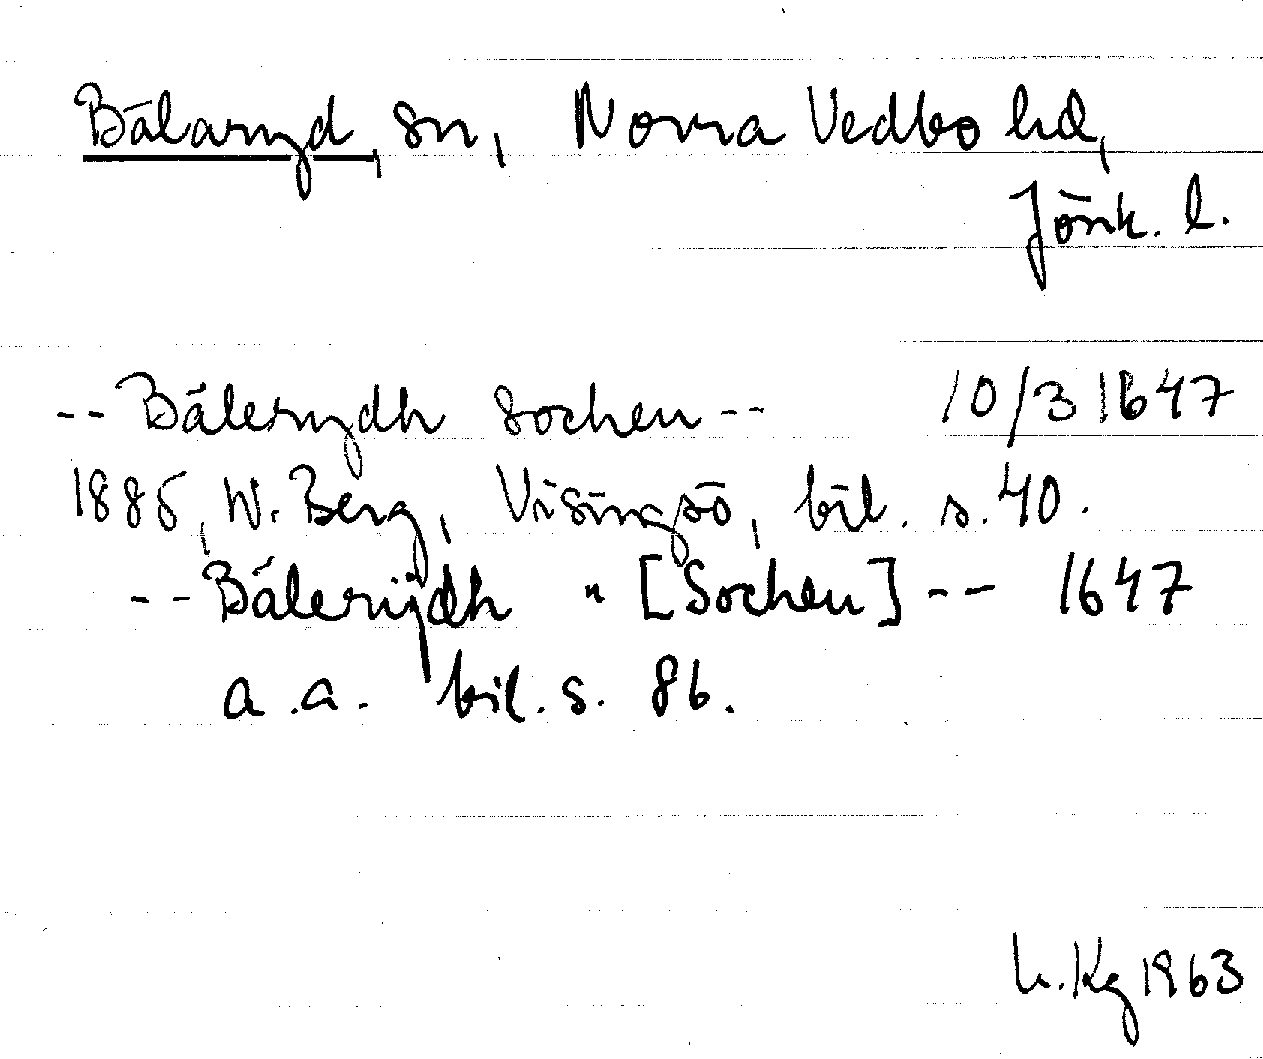 Bälaryd, sn, Norra Vedbo hd,
Jönk. l.
-- Bälerydh sochen -- 10/3 1647
1885, W. Berg, Visingsö, bil. s. 40.
-- Bälerijdh " [Sochen] -- 1647
a.a. bil. s. 86.
h. Kg 1963